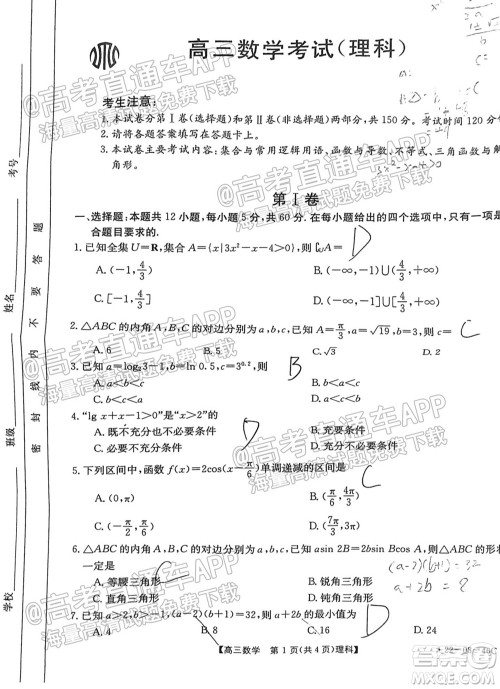 高三数学考试(理科)
考生注意:
1.本试卷分第Ⅰ卷(选择题)和第Ⅱ卷(非选择题)两部分,共150分。考试时间120分
2.请将各题答案填写在答题卡上。
3.本试卷主要考试内容:集合与常用逻辑用语、函数与导数、不等式、三角函数与解
角形。
第Ⅰ卷
一、选择题:本题共12小题,每小题5分,共60分.在每小题给出的四个选项中,只有一项
合题目要求的.
1.已知全集U=R,集合A={x|3x²-x-4>0},则∁ᵤA= D
A.(-1,4/3) B.(-∞,-1)∪(4/3,+∞)
C.[-1,4/3] D.(-∞,-1]∪[4/3,+∞)
2.△ABC的内角A,B,C的对边分别为a,b,c,已知A=π/3,a=√19,b=3,则c= C
A.6 B.5 C.√3 D.2
3.已知a=log₂3-1,b=ln 0.5,c=3^0.2,则 B
A.a<b<c B.b<a<c
4.“lg x+x-1>0”是“x>2”的 D
A.既不充分也不必要条件 B.充要条件
C.充分不必要条件 D.必要不充分条件
5.下列区间中,函数f(x)=2cos(x-π/6)单调递减的区间是
A.(0,π) B.(π/6,4π/3)
C.(-π/2,π/6) D.(7π/3,3π)
6.△ABC的内角A,B,C的对边分别为a,b,c,已知asin 2B=2bsin Bcos A,则△ABC
一定是 C
A.等腰三角形 B.锐角三角形
C.直角三角形 D.钝角三角形
(a-2)(b+1)=32
a+2b=
7.已知a>2,b>-1,(a-2)(b+1)=32,则a+2b的最小值为
A.4 B.8 C.16 D.24
【高三数学 第1页(共4页)理科】
考号
姓名
班级
学校
密封线内不要答题
@高考直通车APP
海量高清试题免费下载